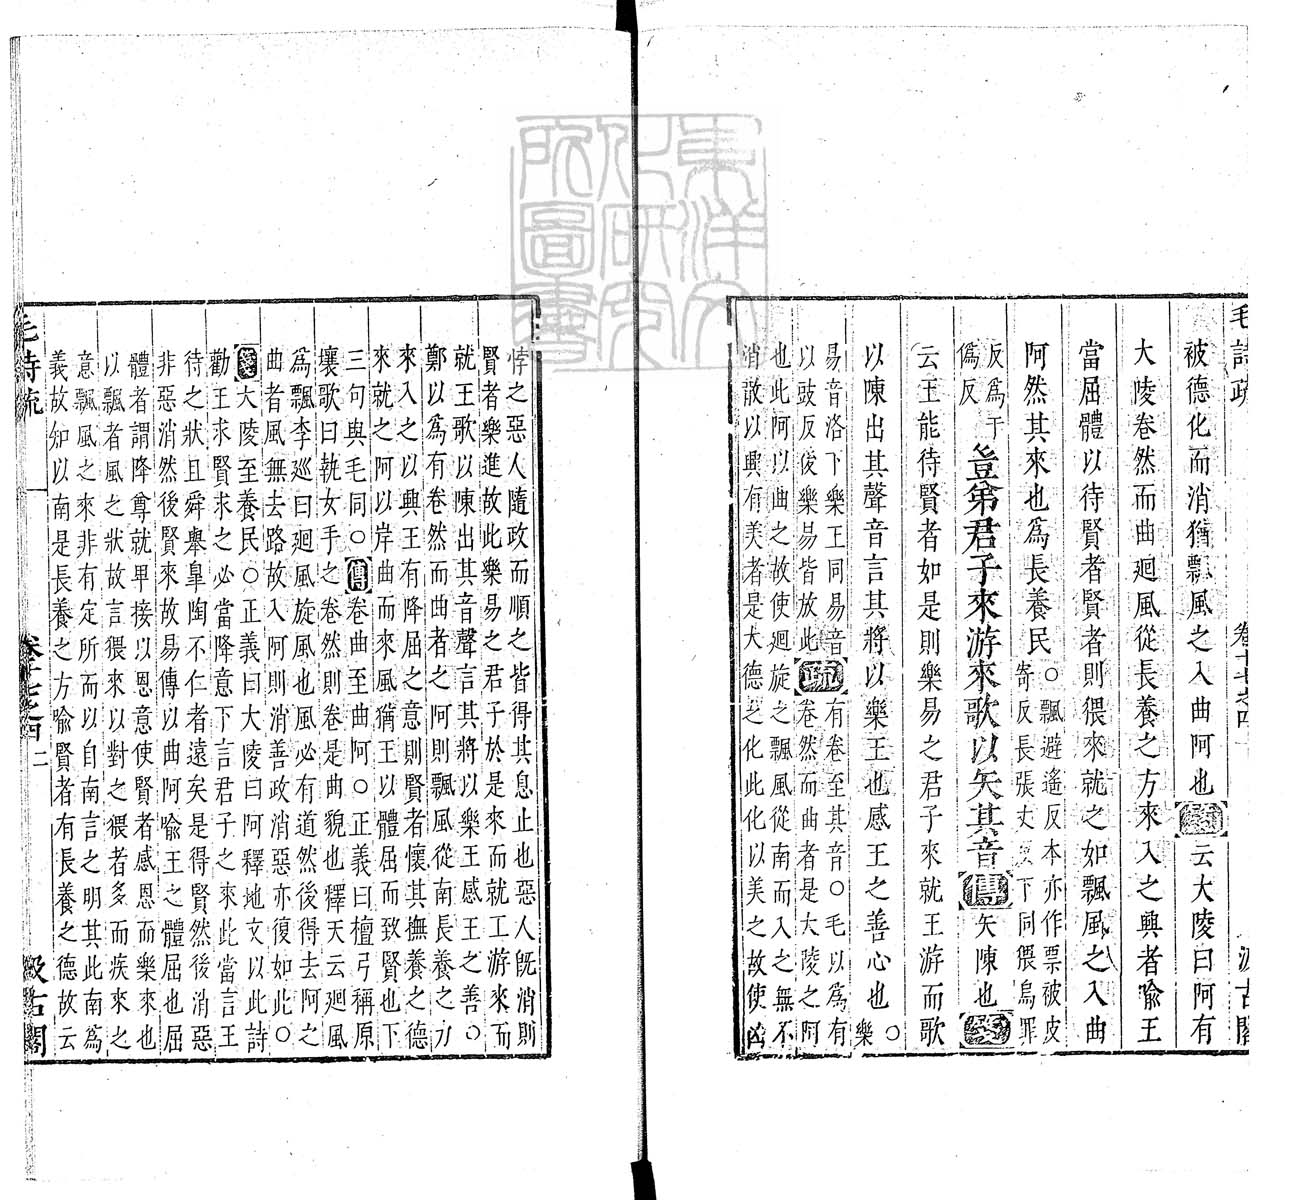 毛詩疏 卷十七之四 一 汲古閣
被德化而消猶飄風之入曲阿也箋云大陵曰阿有
大陵卷然而曲廻風從長養之方來入之興者喻王
當屈體以待賢者賢者則猥來就之如飄風之入曲
阿然其來也爲長養民○飄避遙反本亦作票被皮
寄反長張丈反下同猥烏罪
反爲于
偽反豈弟君子來游來歌以矢其音傳矢陳也箋
云王能待賢者如是則樂易之君子來就王游而歌
以陳出其聲音言其將以樂王也感王之善心也○
樂
易音洛下樂王同易音
以豉反後樂易皆放此疏有卷至其音○毛以爲有
卷然而曲者是大陵之阿
也此阿以曲之故使廻旋之飄風從南而入之無不
消散以興有美者是大德之化此化以美之故使凶
悖之惡人隨政而順之皆得其息止也惡人旣消則
賢者樂進故此樂易之君子於是來而就王游來而
就王歌以陳出其音聲言其將以樂王感王之善○
鄭以爲有卷然而曲者之阿則飄風從南長養之方
來入之以興王有降屈之意則賢者懷其撫養之德
來就之阿以岸曲而來風猶王以體屈而致賢也下
三句與毛同○傳卷曲至曲阿○正義曰檀弓稱原
壤歌曰執女手之卷然則卷是曲貌也釋天云廻風
爲飄李廵曰廻風旋風也風必有道然後得去阿之
曲者風無去路故入阿則消善政消惡亦復如此○
箋大陵至養民○正義曰大陵曰阿釋地文以此詩
勸王求賢求之必當降意下言君子之來此當言王
待之狀且舜舉臯陶不仁者遠矣是得賢然後消惡
非惡消然後賢來故易傳以曲阿喻王之體屈也屈
體者謂降尊就卑接以恩意使賢者感恩而樂來也
以飄者風之狀故言猥來以對之猥者多而疾來之
意飄風之來非有定所而以自南言之明其此南爲
義故知以南是長養之方喻賢者有長養之德故云
毛詩疏 卷十七之四 二 汲古閣
東洋文化研究所圖書